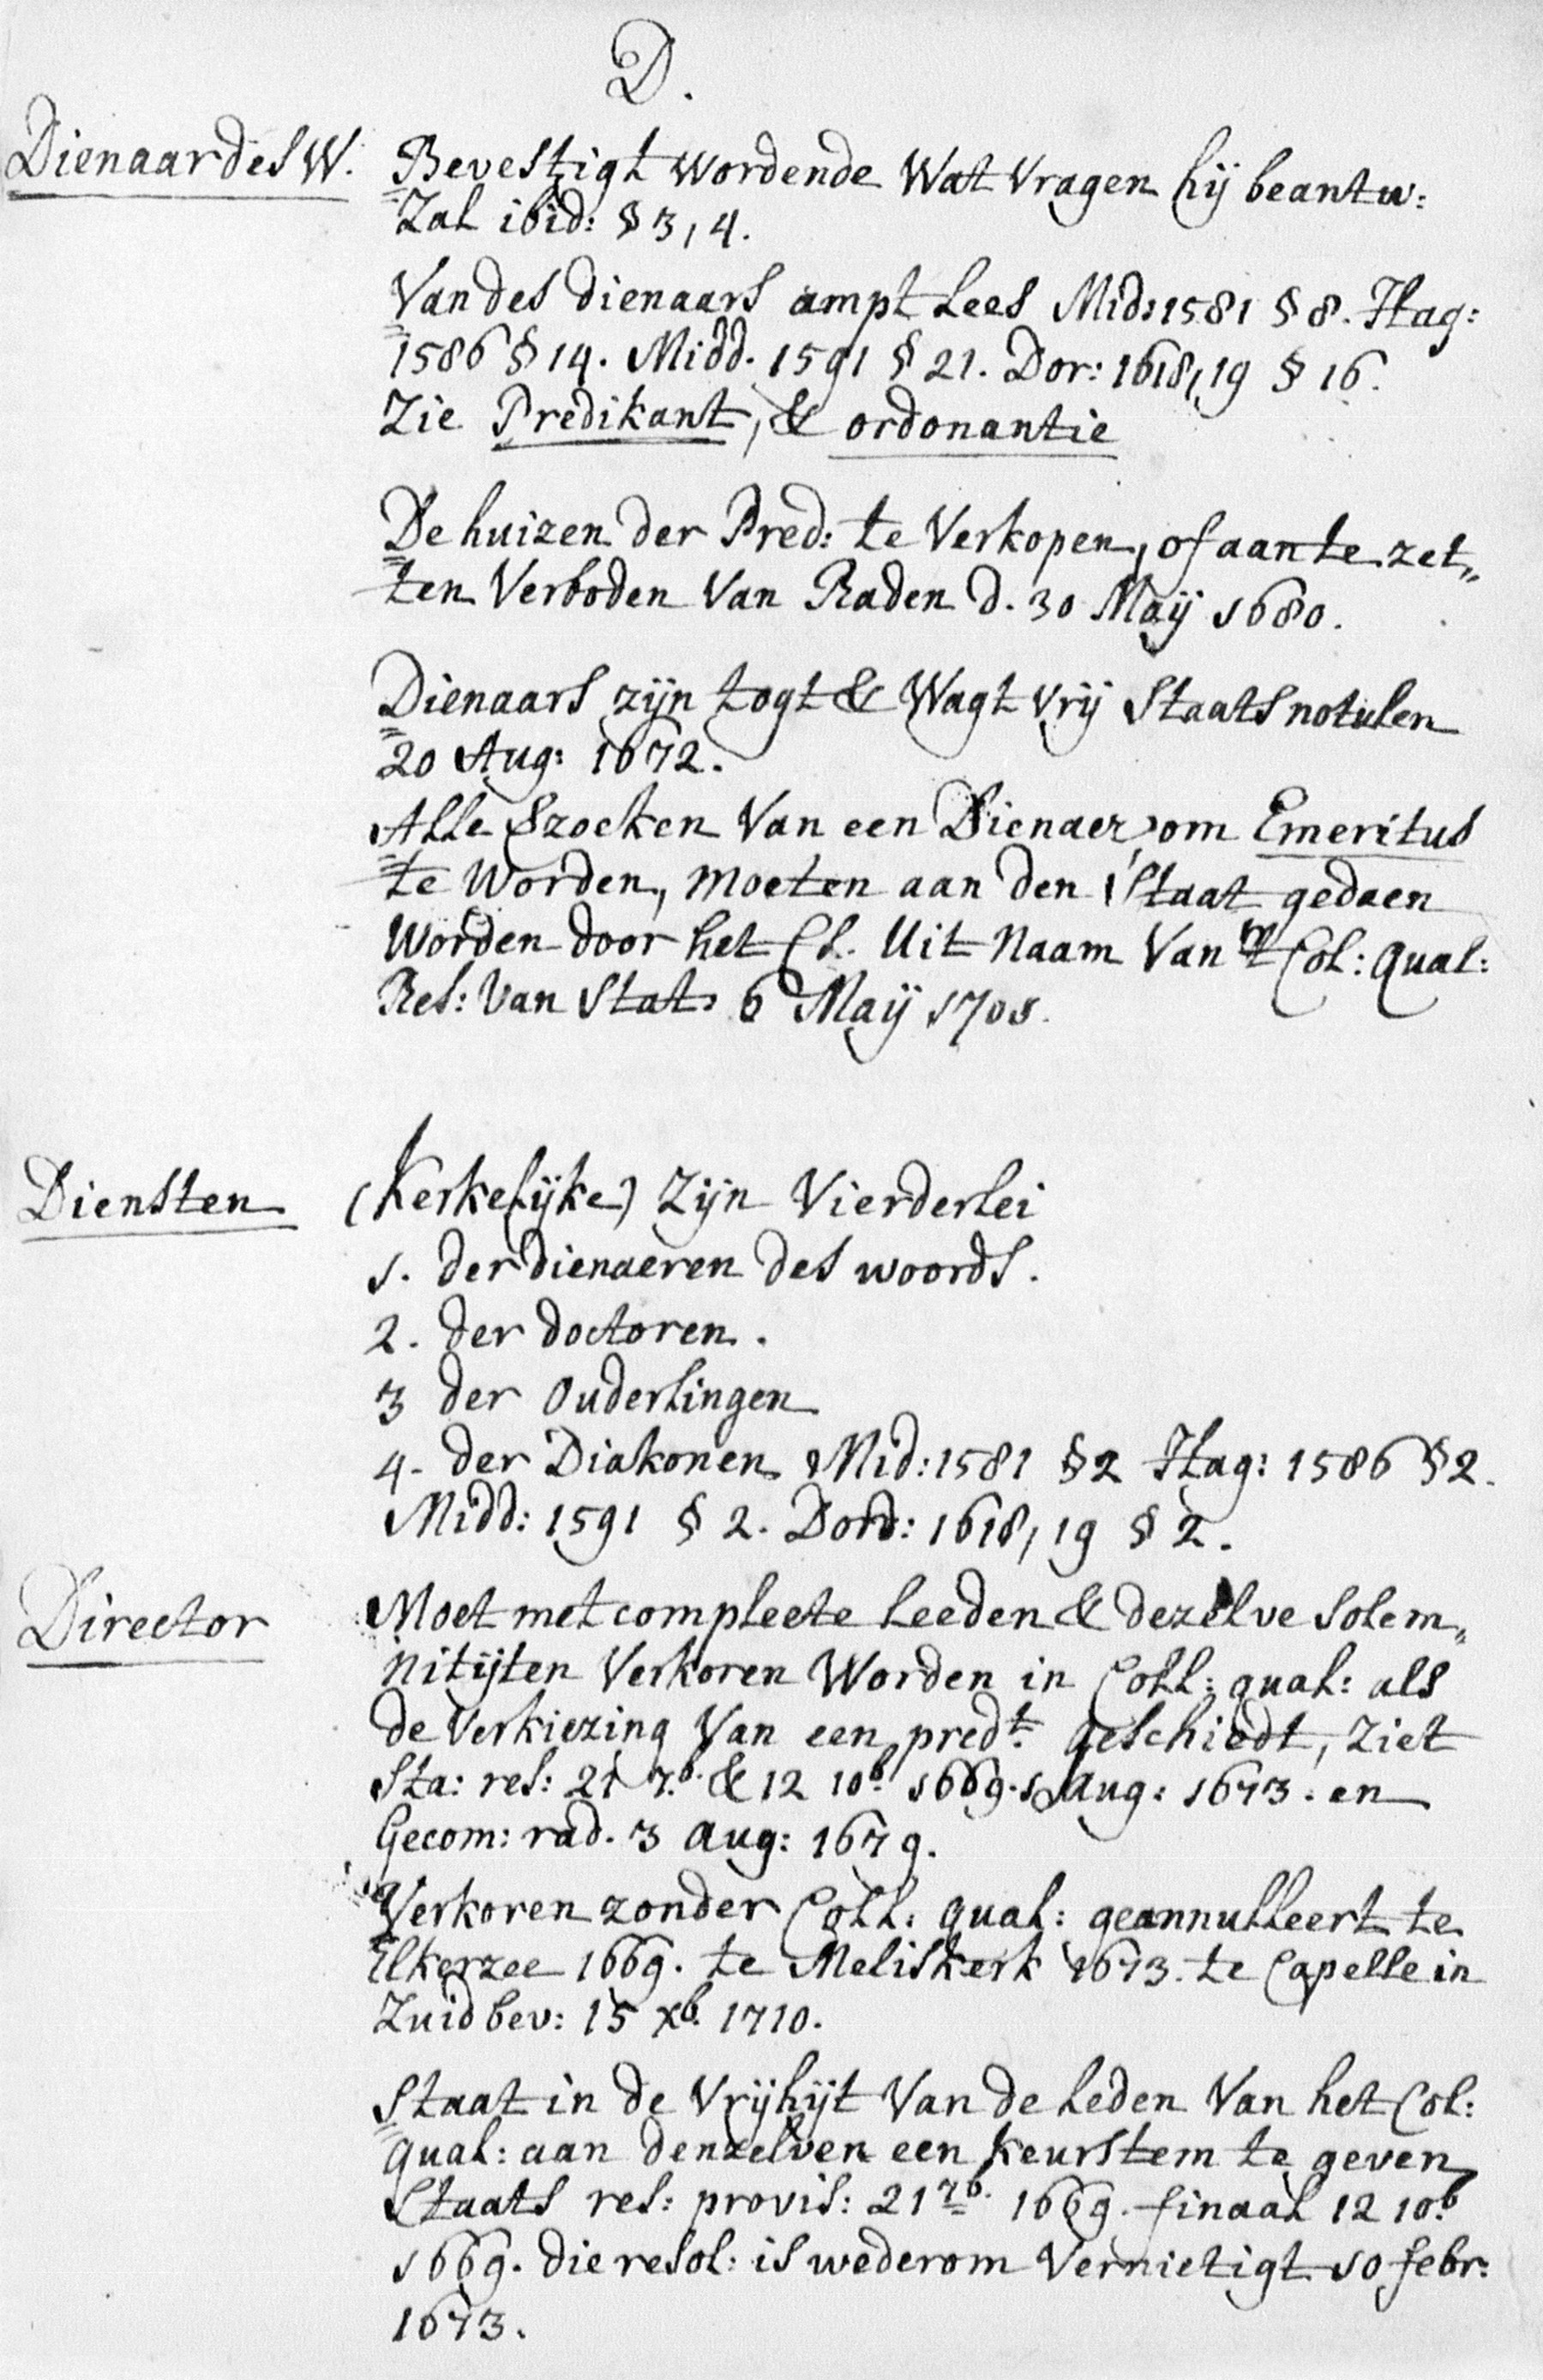 D.
Dienaar des W. Bevestigt wordende Wat Vragen hij beantw:
Zal ibid: § 3, 4.
Van des dienaars ampt Lees Mid: 1581 § 8. Hag:
1586 § 14. Midd. 1591 § 21. Dor: 1618, 19 § 16.
Zie Predikant, & ordonantie
De huizen der Pred: te Verkopen, of aan te zet„
ten Verboden Van Raden d. 30 Maÿ 1680.
Dienaars zijn togt & Wagt vrij Staats notulen
20 Aug: 1672.
Alle Vzoeken Van een Dienaer, om Emeritus
te Worden, moeten aan den Staat gedaen
Worden door het Cl. Uit Naam Van 't Col: qual:
Res: van Stat: 6 Maÿ 1705.
Diensten (Kerkelijke) Zijn Vierderlei
1. der dienaeren des woords.
2. der doctoren.
3 der Ouderlingen
4. der Diakonen Mid: 1581 § 2 Hag: 1586 § 2.
Midd: 1591 § 2. Dord: 1618, 19 § 2.
Director Moet met compleete Leeden & dezelve Solem„
nitijten Verkoren Worden in Coll: qual: als
de Verkiezing Van een predt. geschiedt, Ziet
Sta: res: 21 7b. & 12 10b. 1669. Aug: 1673. en
Gecom: rad. 3 Aug: 1679.
Verkoren zonder Coll: qual: geannulleert te
Elkerzee 1669. te Meliskerk 1673. te Capelle in
Zuidbev: 15 xb. 1710.
Staat in de Vrijhijt Van de Leden Van het Col:
qual: aan denzelven een keurstem te geven
Staats res: provis: 21 7b. 1669. finaal 12 10b
1669. die resol: is wederom Vernietigt 10 febr:
1673.